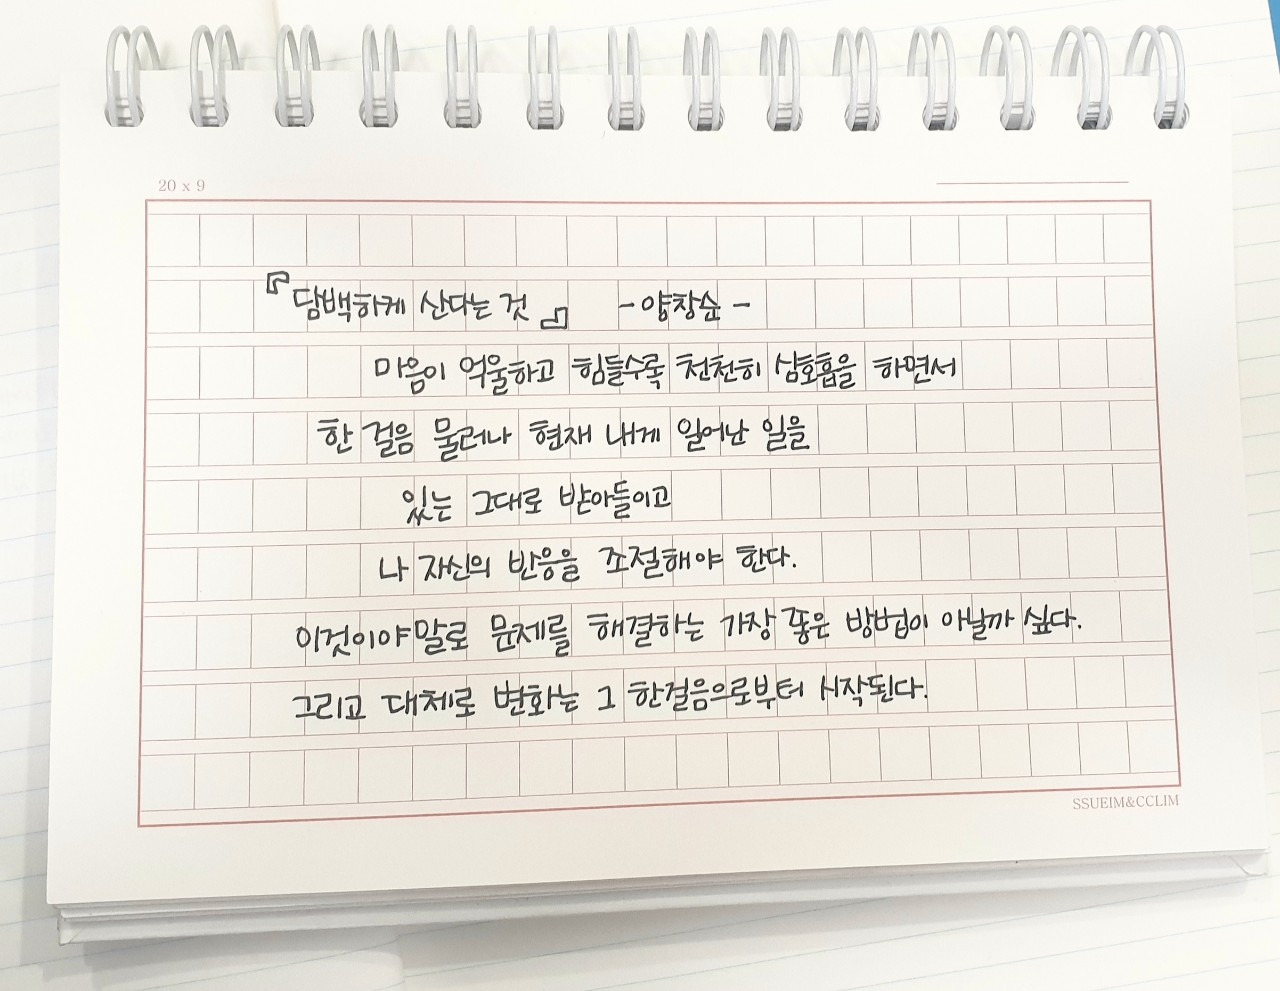 20 x 9
『담백하게 산다는 것』 -양창순-
마음이 억울하고 힘들수록 천천히 심호흡을 하면서
한 걸음 물러나 현재 내게 일어난 일을
있는 그대로 받아들이고
나 자신의 반응을 조절해야 한다.
이것이야말로 문제를 해결하는 가장 좋은 방법이 아닐까 싶다.
그리고 대체로 변화는 그 한걸음으로부터 시작된다.
SSUEIM&CCLIM